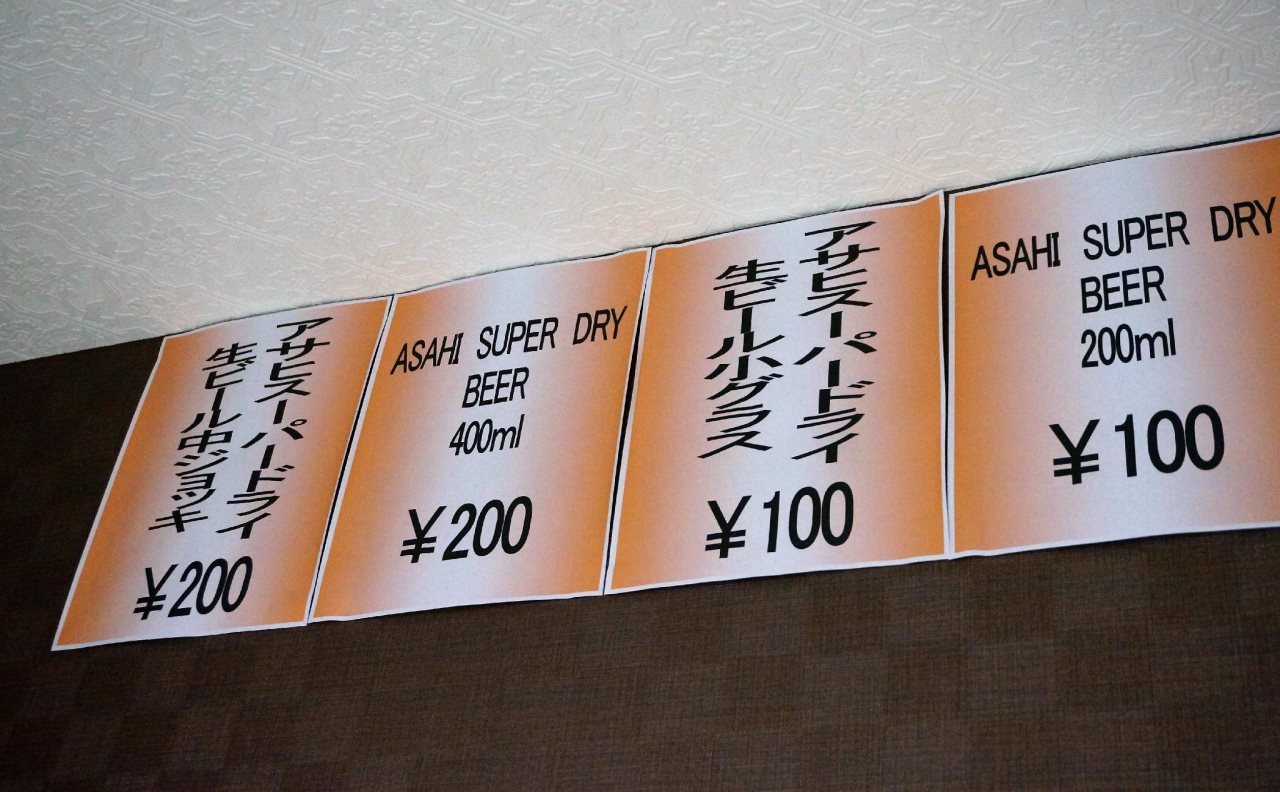 アサヒスーパードライ
生ビール中ジョッキ
¥200
ASAHI SUPER DRY
BEER
400ml
¥200
アサヒスーパードライ
生ビール小グラス
¥100
ASAHI SUPER DRY
BEER
200ml
¥100